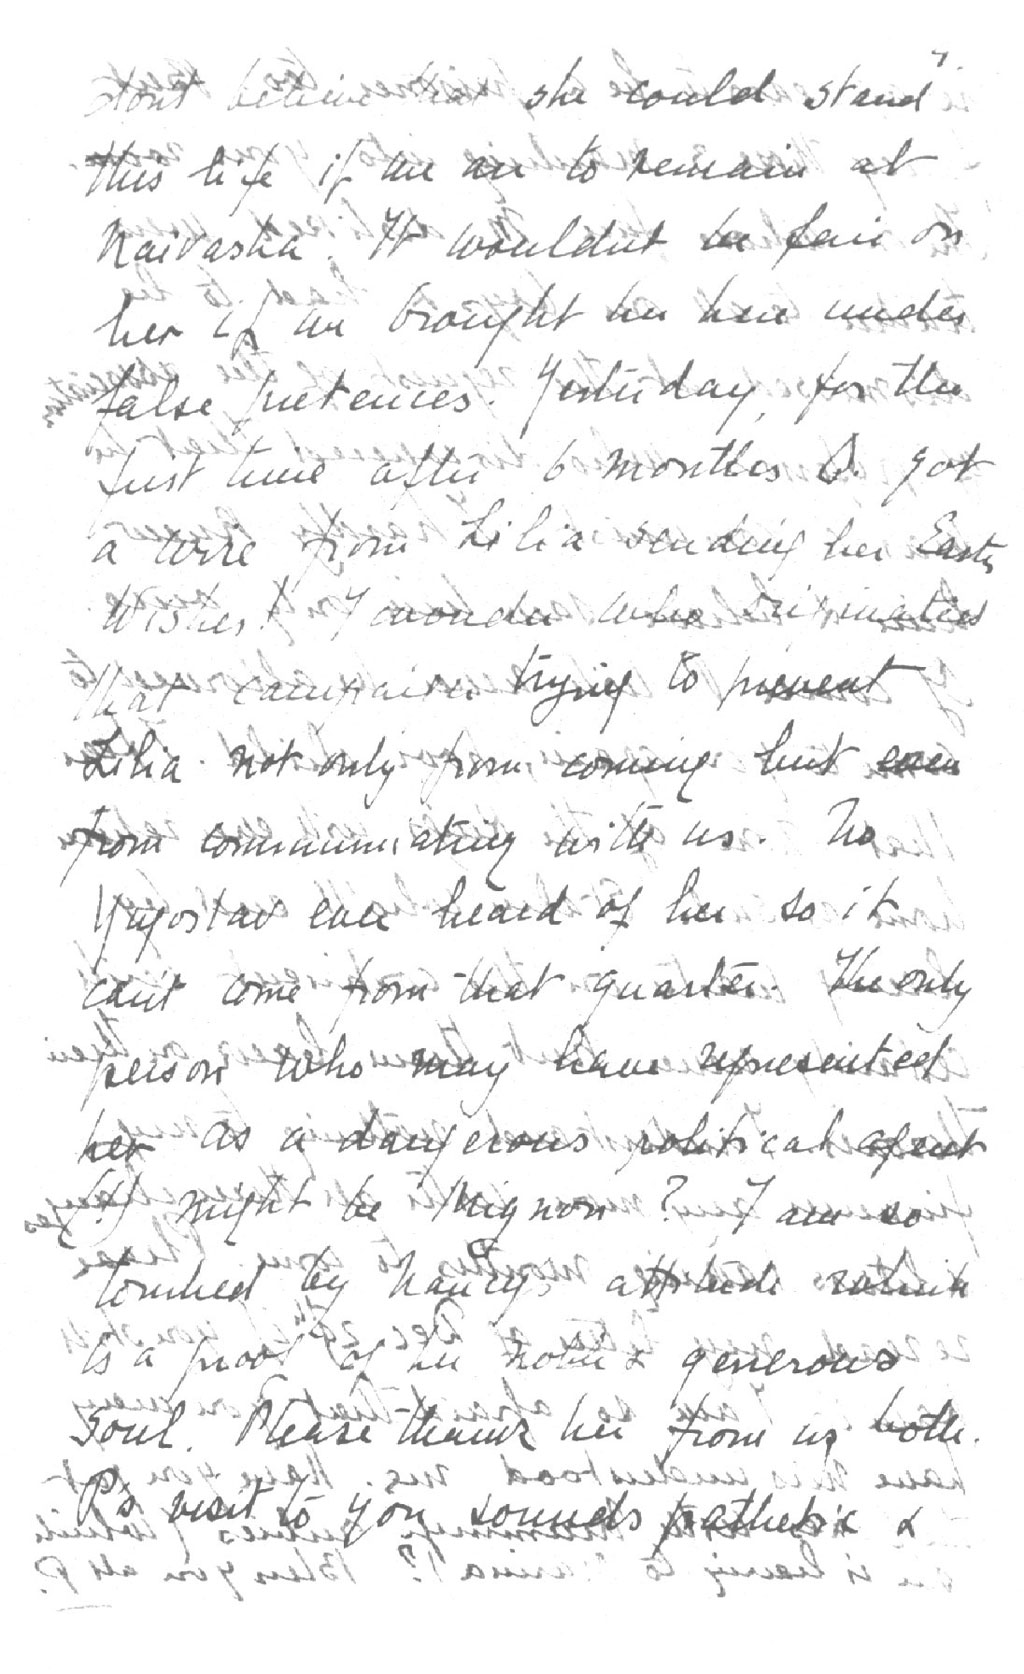 dont believe that she could stand
this life if we are to remain at
Naivasha. It wouldnt be fair on
her if we brought her here under
false pretences. Yesterday, for the
first time after 6 months O. got
a wire from Lilia sending her Easter
wishes! I wonder who originates
that campaign trying to prevent
Lilia not only from coming but even
from communicating with us. No
Yugoslav ever heard of her so it
can't come from that quarter. The only
person who may have represented
her as a dangerous political agent
(!) might be Mignon? I am so
touched by Nancy's attitude which
is a proof of her noble & generous
soul. Please thank her from us both.
P's visit to you sounds pathetic &